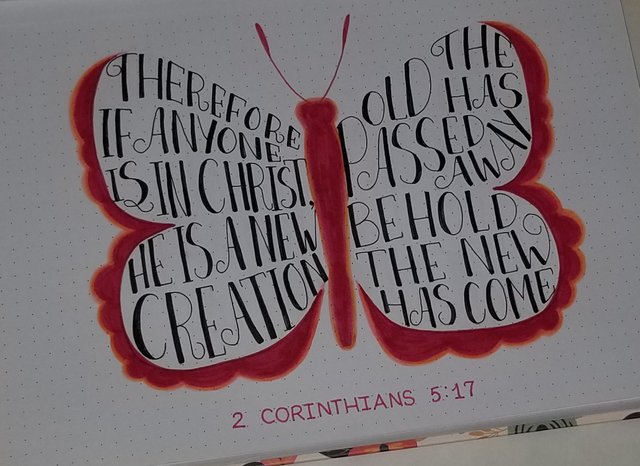 THEREFORE
IF ANYONE
IS IN CHRIST,
HE IS A NEW
CREATION
THE
OLD HAS
PASSED
AWAY
BEHOLD
THE NEW
HAS COME
2 CORINTHIANS 5:17